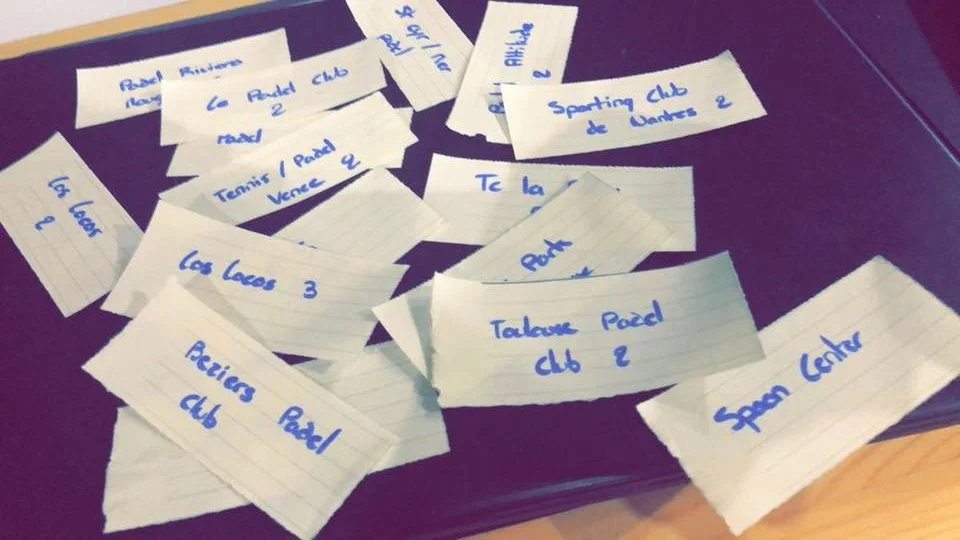 Padel Riviera
Le Padel Club
2
Padel
Tennis / Padel
Vence 2
Attitude
2
Sporting Club
de Nantes 2
Los Locos
2
Tc la
Los Locos 3
Park
Toulouse Padel
Club 2
Beziers Padel
Club
Spoon Center